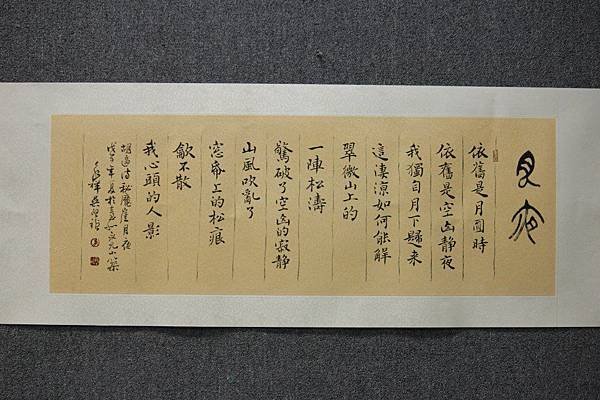 月夜
依舊是月圓時
依舊是空幽靜夜
我獨自月下歸來
這淒涼如何能解
翠微山上的
一陣松濤
驚破了空幽的寂靜
山風吹亂了
窓帘上的松痕
歙不散
我心頭的人影
胡適詩祕魔崖月夜
戊子年夏於